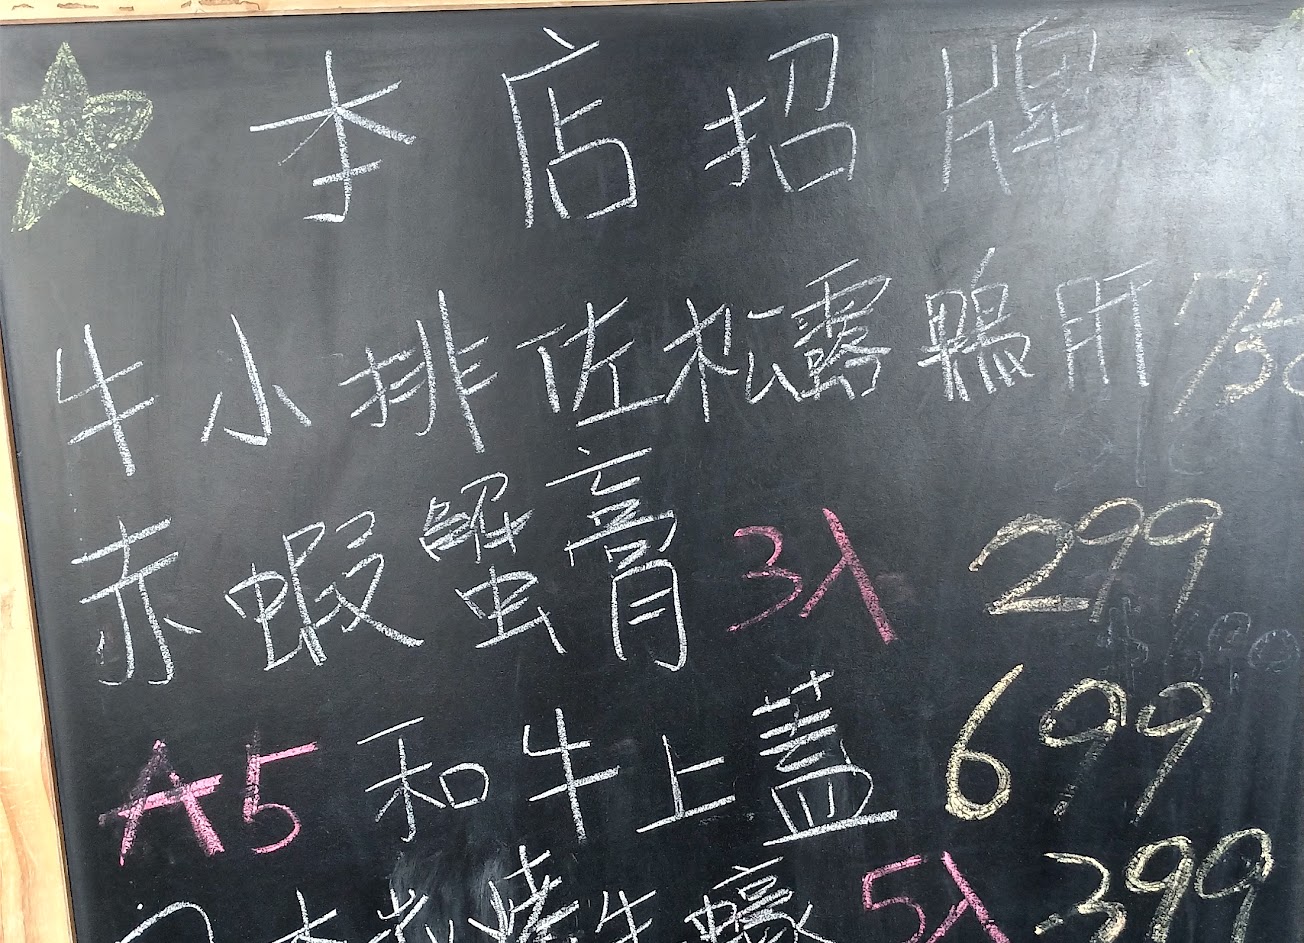 李店招牌
牛小排佐松露鴨肝 750
赤蝦蟹膏 3入 299
A5 和牛上蓋 699
燒牛蠔 5入 399